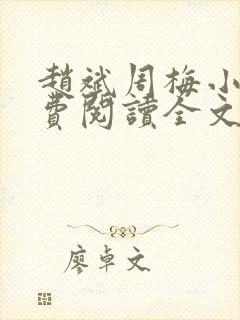 趙斌周梅小
費閱讀全文
廖卓文